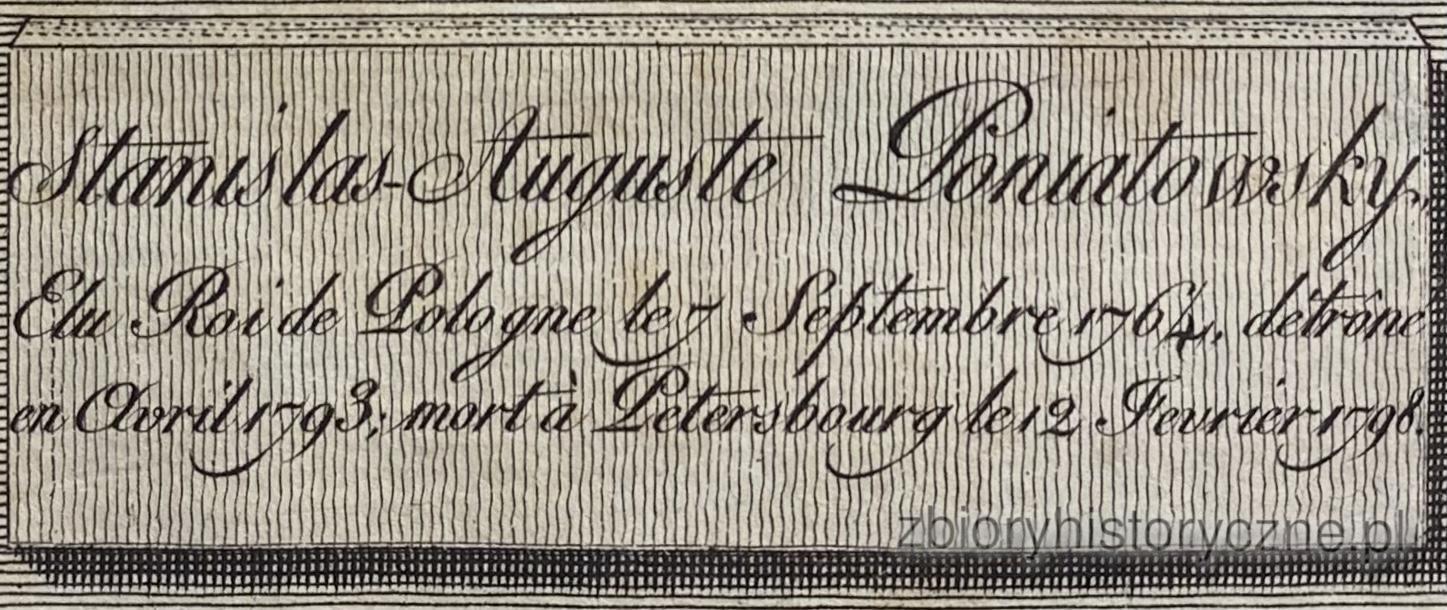 Stanislas-Auguste Poniatowsky,
Elu Roi de Pologne le 7 Septembre 1764, détrône
en Avril 1793; mort à Petersbourg le 12 Fevrier 1798.
zbioryhistoryczne.pl